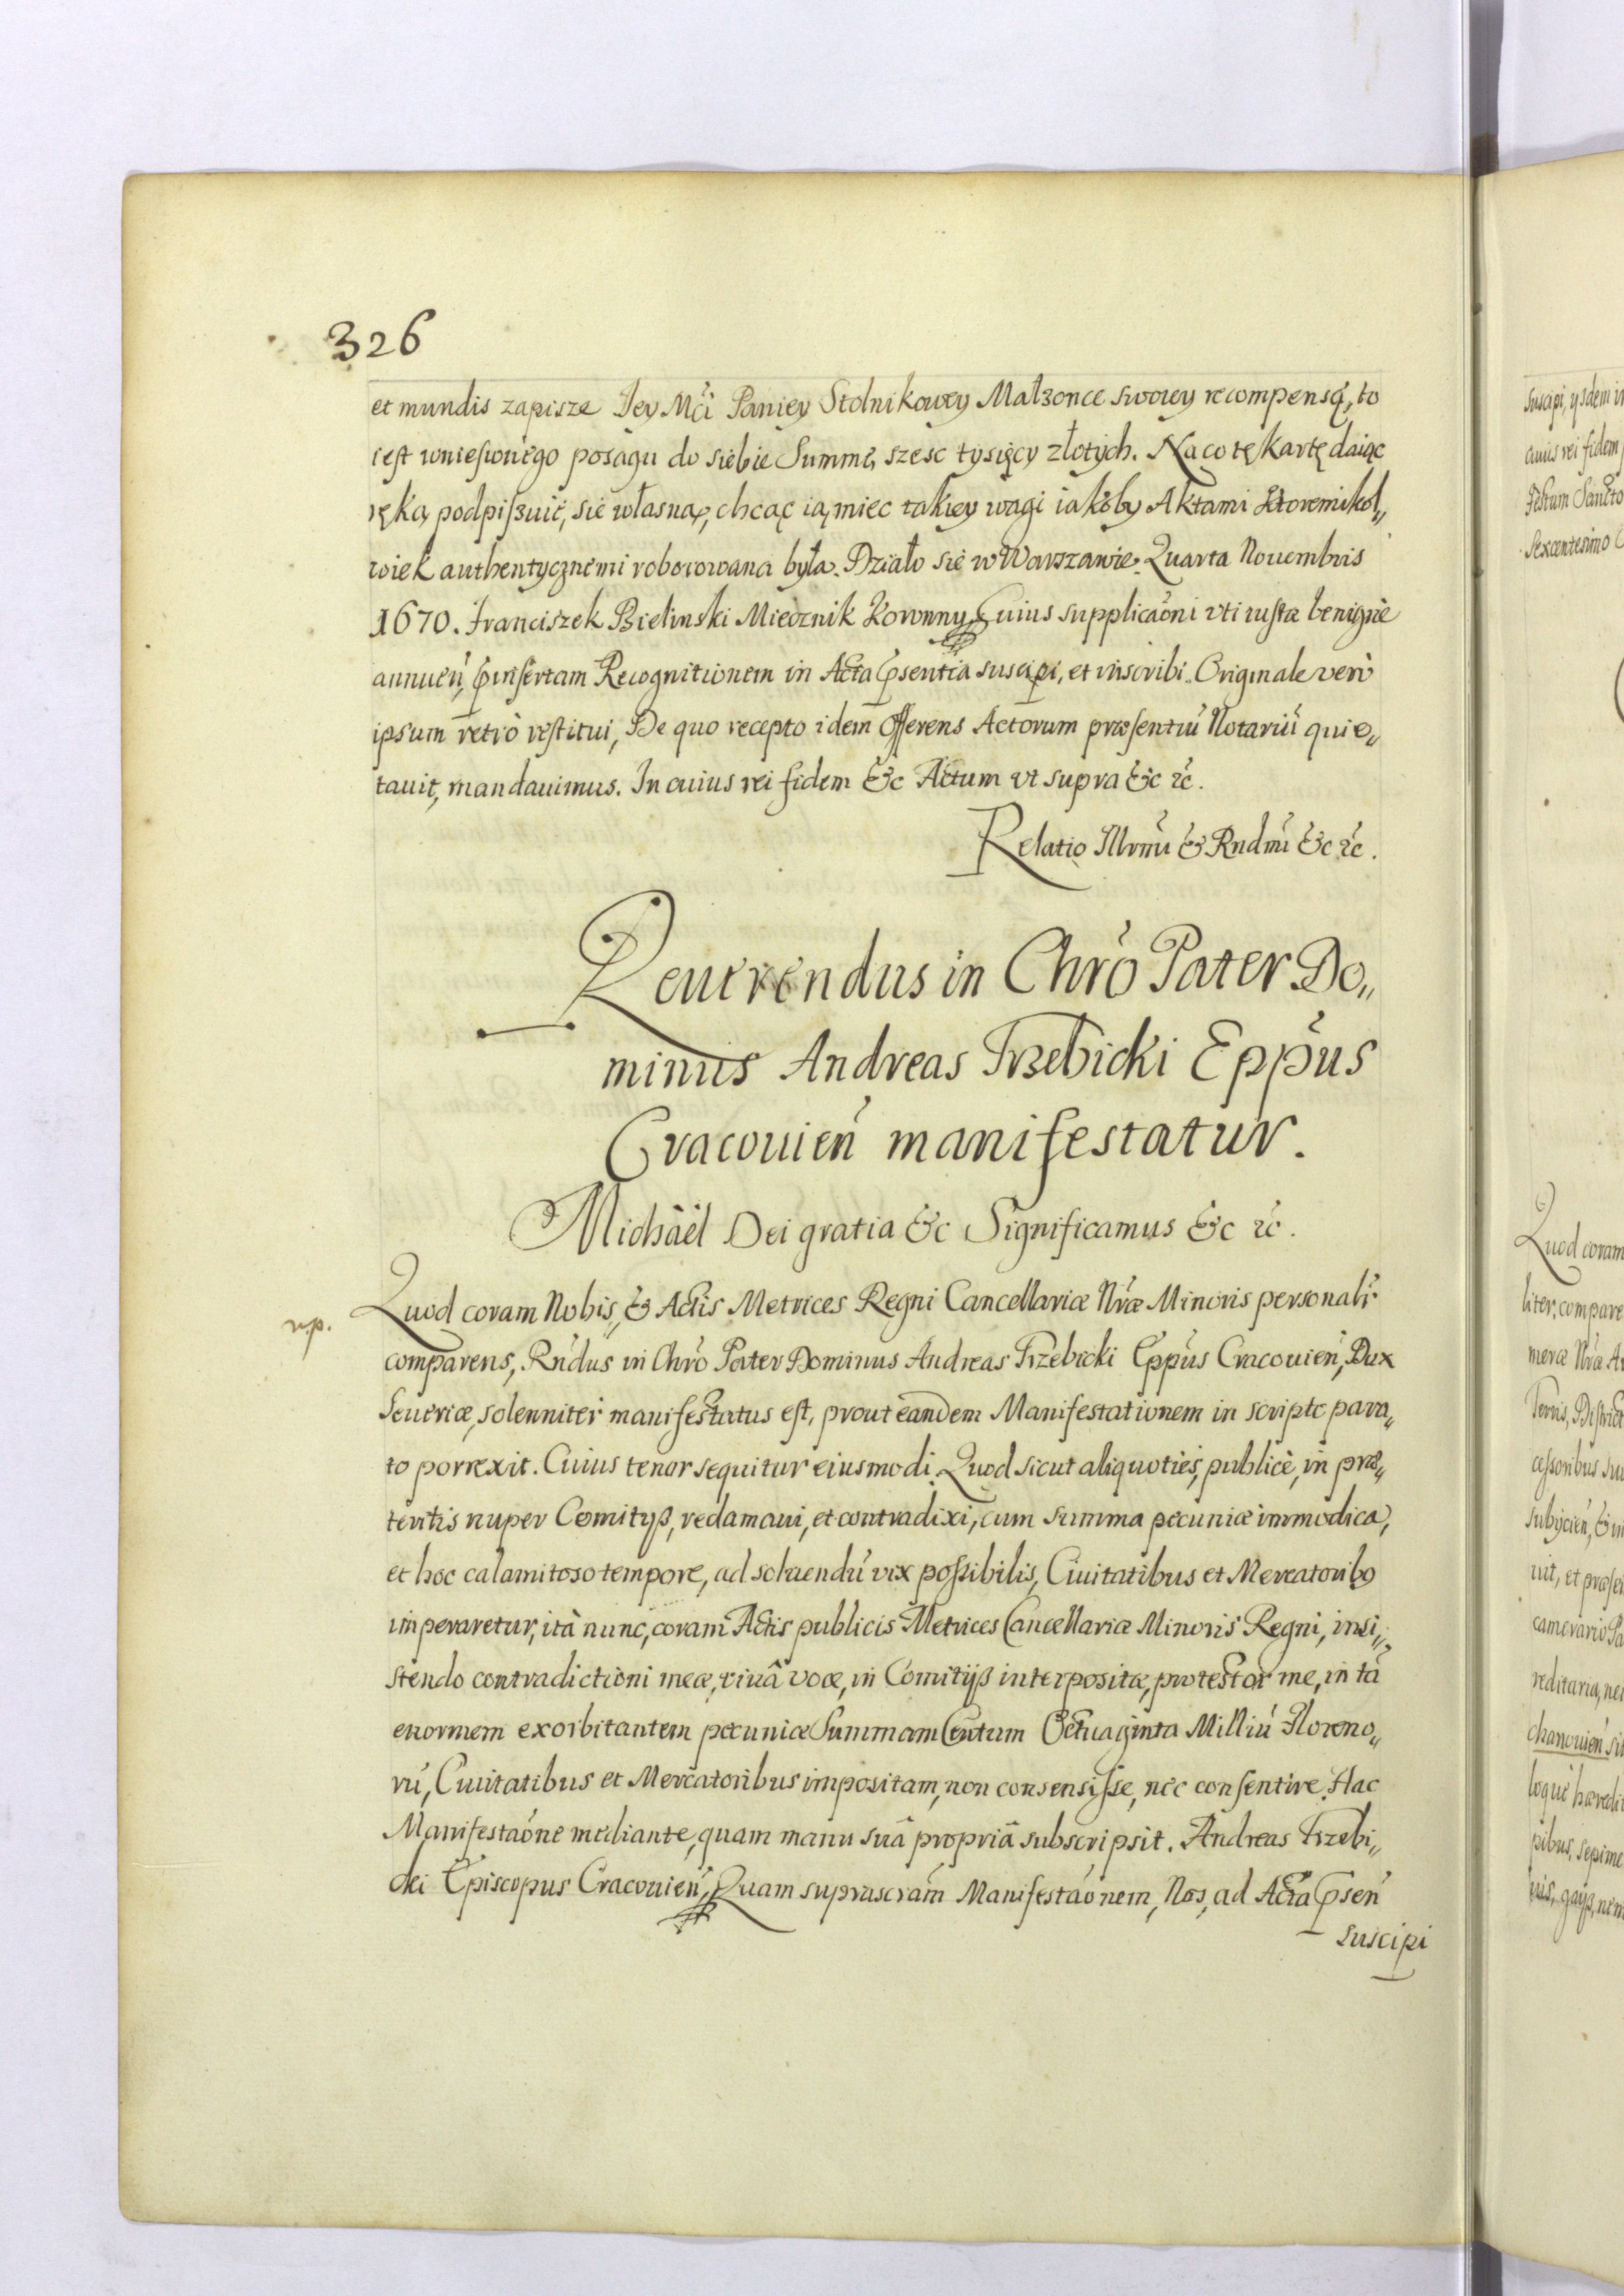 326
et mundis zapisze Jey Mći Paniey Stolnikowey Małzonce swoiey recompensą, to
iest wniesionego posagu do siebie Summę, szesc tysięcy złotych. Na co tę kartę daiąc
ręką podpiszuię, się własną, chcąc ią miec takiey wagi iakoby Aktami ktoremikol„
wiek authentycznemi roborowana była. Działo się w Warszawie. Quarta Nouembris
1670. Franciszek Bielinski Miecznik Koronny. Cuius supplicaoni vti iustæ benigne
annuen, p̄insertam Recognitionem in Acta p̄sentia suscipi, et inscribi. Originale verò
ipsum retrò restitui, De quo recepto idem Offerens Actorum præsentiū Notariū quie„
tauit, mandauimus. In cuius rei fidem &c Actum vt supra &c rc.
Relatio Illrmi & Rndmi &c rc.
Reuerendus in Chrō Pater Do„
minus Andreas Trzebicki Eppūs
Cracouien manifestatur.
Michäel Dei gratia &c Significamus &c rc.
Quod coram Nobis, & Actis Metrices Regni Cancellariæ Nrāe Minoris personalr
comparens, Rndus in Chrō Pater Dominus Andreas Trzebicki Eppūs Cracouien, Dux
Seueriæ, solenniter manifestatus est, prout eandem Manifestationem in scripto para„
to porrexit. Cuius tenor sequitur eiusmodi. Quod sicut aliquoties, publicè, in præ„
teritis nuper Comitijs, reclamaui, et contradixi, cum summa pecuniæ immodica,
et hoc calamitoso tempore, ad soluendū vix possibilis, Ciuitatibus et Mercatorib9
imperaretur, ità nunc, coram Actis publicis Metrices Cancellariæ Minoris Regni, insi„
stendo contradictioni meæ, viuâ voce, in Comitijs interpositæ, protestor me, in tā
enormem exorbitantem pecuniæ Summam Centum Octuaginta Milliū Floreno„
rū, Ciuitatibus et Mercatoribus impositam, non consensisse, nec consentire. Hac
Manifestaōne mediante, quam manu suâ propriâ subscripsit. Andreas Trzebi„
cki Episcopus Cracouien, Quam suprascrām Manifestaōnem, Nos, ad Acta p̄sen
suscipi